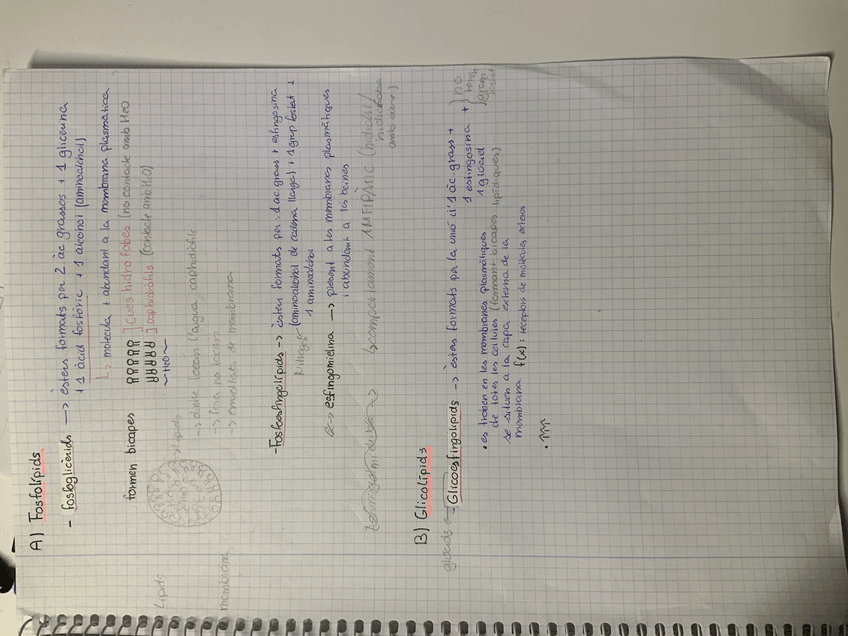 A) Fosfolípids
- Fosfoglicèrids → èsters formats per 2 àc grassos + 1 glicerina
+ 1 àcid fosfòric + 1 alcohol (aminoalcohol)
↳ molècula + abundant a la membrana plasmàtica
formen bicapes
] cues hidrofobes (no contacte amb H2O)
] caphidròfils (contacte amb H2O)
~H2O~
Lípids
membrana
→ lípids
- Fosfoesfingolípids → èsters formats per: 1 àc grass + esfingosina
(aminoalcohol de cadena llarga) + 1 grup fosfat +
1 aminoalcohol
→ esfingomielina → present a les membranes plasmàtiques
i abundant a les beines
↳ comportament AMFIPÀTIC
B) Glicolípids
glúcids
- Glicoesfingolípids → èsters formats per la unió d'1 àc grass +
1 esfingosina +
1 glúcid
} no
tenen
grup
fosfat
• es troben en les membranes plasmàtiques
de totes les cèl·lules (formant bicapes lipídiques)
se situen a la capa externa de la
membrana. f(x): receptors de molècules externes
• m